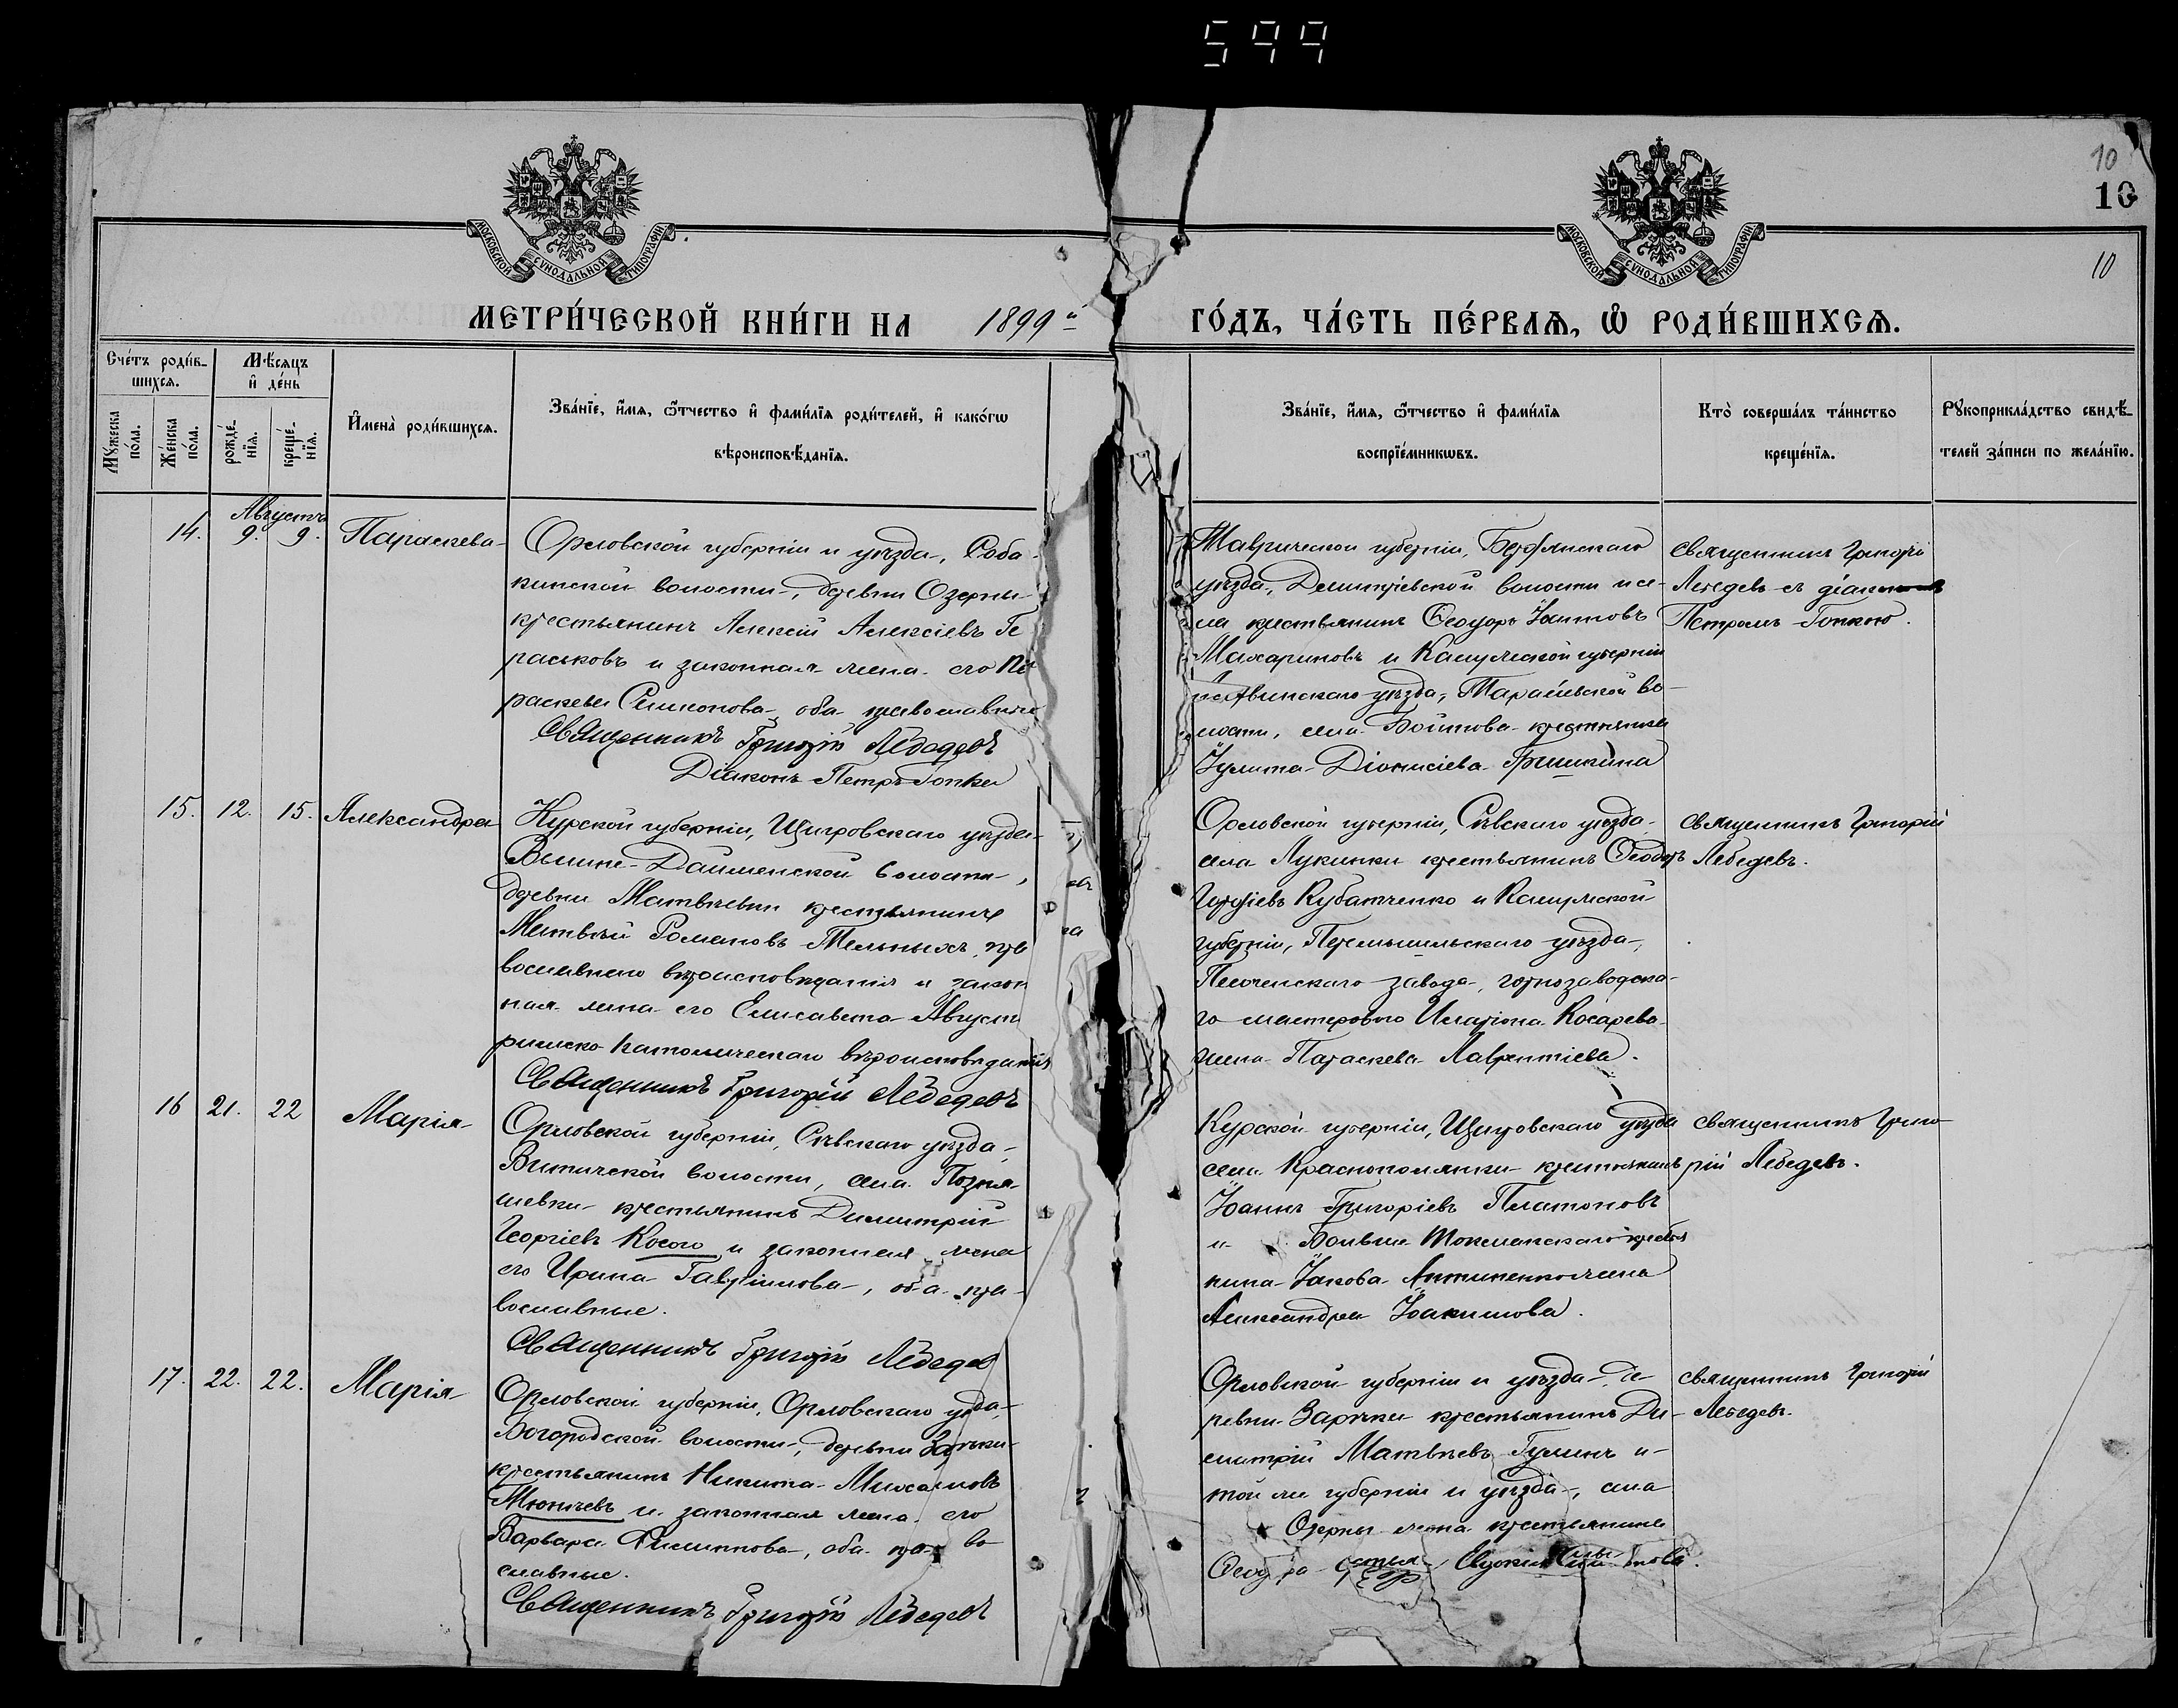 599
10
10
10
МОСКОВСКОЙ СѴНОДАЛЬНОЙ ТИПОГРАФІИ
МОСКОВСКОЙ СѴНОДАЛЬНОЙ ТИПОГРАФІИ
МЕТРИ́ЧЕСКОЙ КНИ́ГИ НА 1899й ГО́ДЪ, ЧА́СТЬ ПЕ́РВАѦ, Ѽ РОДИ́ВШИХСѦ.
Сче́тъ роди́в-
шихсѧ.
Мꙋ́жеска по́ла.
Же́нска по́ла.
Мѣ́сѧцъ и҆ де́нь
рожде́-нїѧ.
креще́-нїѧ.
И҆мена̀ роди́вшихсѧ.
Зва́нїе, и҆́мѧ, ѻ҆́тчество и҆ фами́лїѧ роди́телей, и҆ како́гѡ
вѣроисповѣ́данїѧ.
Зва́нїе, и҆́мѧ, ѻ҆́тчество и҆ фами́лїѧ
воспрїе́мникѡвъ.
Кто̀ соверша́лъ та́инство
креще́нїѧ.
Рꙋкоприкла́дство свидѣ́-
телей за́писи по жела́нїю.
Августъ
14. 9. 9. Параскева
Орловской губерніи и уѣзда, Соба-
кинской волости, деревни Озерны
крестьянинъ Алексій Алексіевъ Ге
раськовъ и законная жена его Па
раскева Симонова, оба православные
Священникъ Григорій Лебедевъ
Діаконъ Петръ Гопка
Таврической губерніи, Бердянскаго
уѣзда, Димитріевской волости и се-
ла крестьянинъ Ѳеодоръ Іоанновъ
Махариновъ и Калужской губерніи
уѣзда, Тарасьевской во-
лости, села Бойтова крестьянка
Іулита Діонисіева Гришкина
священникъ Григорій
Лебедевъ съ діакономъ
Петромъ Гопкою.
15. 12. 15. Александра
Курской губерніи, Щигровскаго уѣзда
Вышне-Дайменской волости,
деревни Матвѣевки крестьянинъ
Матвѣй Романовъ Мельныхъ, пра
вославнаго вѣроисповѣданія и закон
ная жена его Елисавета Август
римско-католическаго вѣроисповѣданія
Священникъ Григорій Лебедевъ
Орловской губерніи, Сѣвскаго уѣзда,
села Лукинки крестьянинъ Ѳеодоръ
Георгіевъ Кубатченко и Калужской
губерніи, Перемышльскаго уѣзда,
Песоченскаго завода, горнозаводска-
го мастероваго Иларіона Косарева
жена Параскева Лаврентіева.
священникъ Григорій
Лебедевъ.
16 21. 22 Марія
Орловской губерніи, Сѣвскаго уѣзда,
Витичской волости, села Позня-
шевки крестьянинъ Димитрій
Георгіевъ Косого и законная жена
его Ирина Гавріилова, оба пра-
вославные.
Священникъ Григорій Лебедев
Курской губерніи, Щигровскаго уѣзда
села Краснополянки крестьянинъ
Іоаннъ Григоріевъ Платоновъ
и Больше Токмакскаго крестья
нина Іакова Антипенко жена
Александра Іоакимова.
священникъ Григо-
рій Лебедевъ.
17. 22. 22. Марія
Орловской губерніи, Орловскаго уѣзда,
Богородской волости, деревни Зарѣчки
крестьянинъ Никита Михаиловъ
Тюничевъ и законная жена его
Варвара Филиппова, оба пра во
славные.
Священникъ Григорій Лебедевъ
Орловской губерніи и уѣзда, де-
ревни Зарѣчки крестьянинъ Ди-
митрій Матвѣевъ Гулинъ и
той же губерніи и уѣзда, села
Озерны жена крестьянина
священникъ Григорій
Лебедевъ.